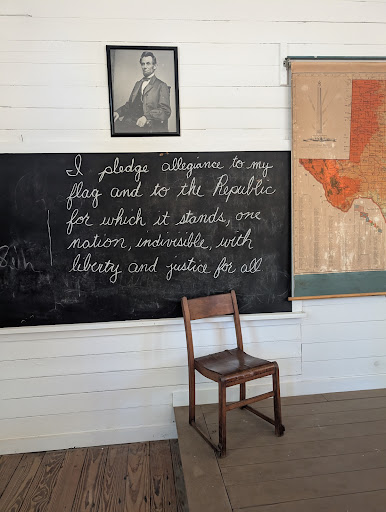 I pledge allegiance to my
flag and to the Republic
for which it stands, one
nation, indivisible, with
liberty and justice for all